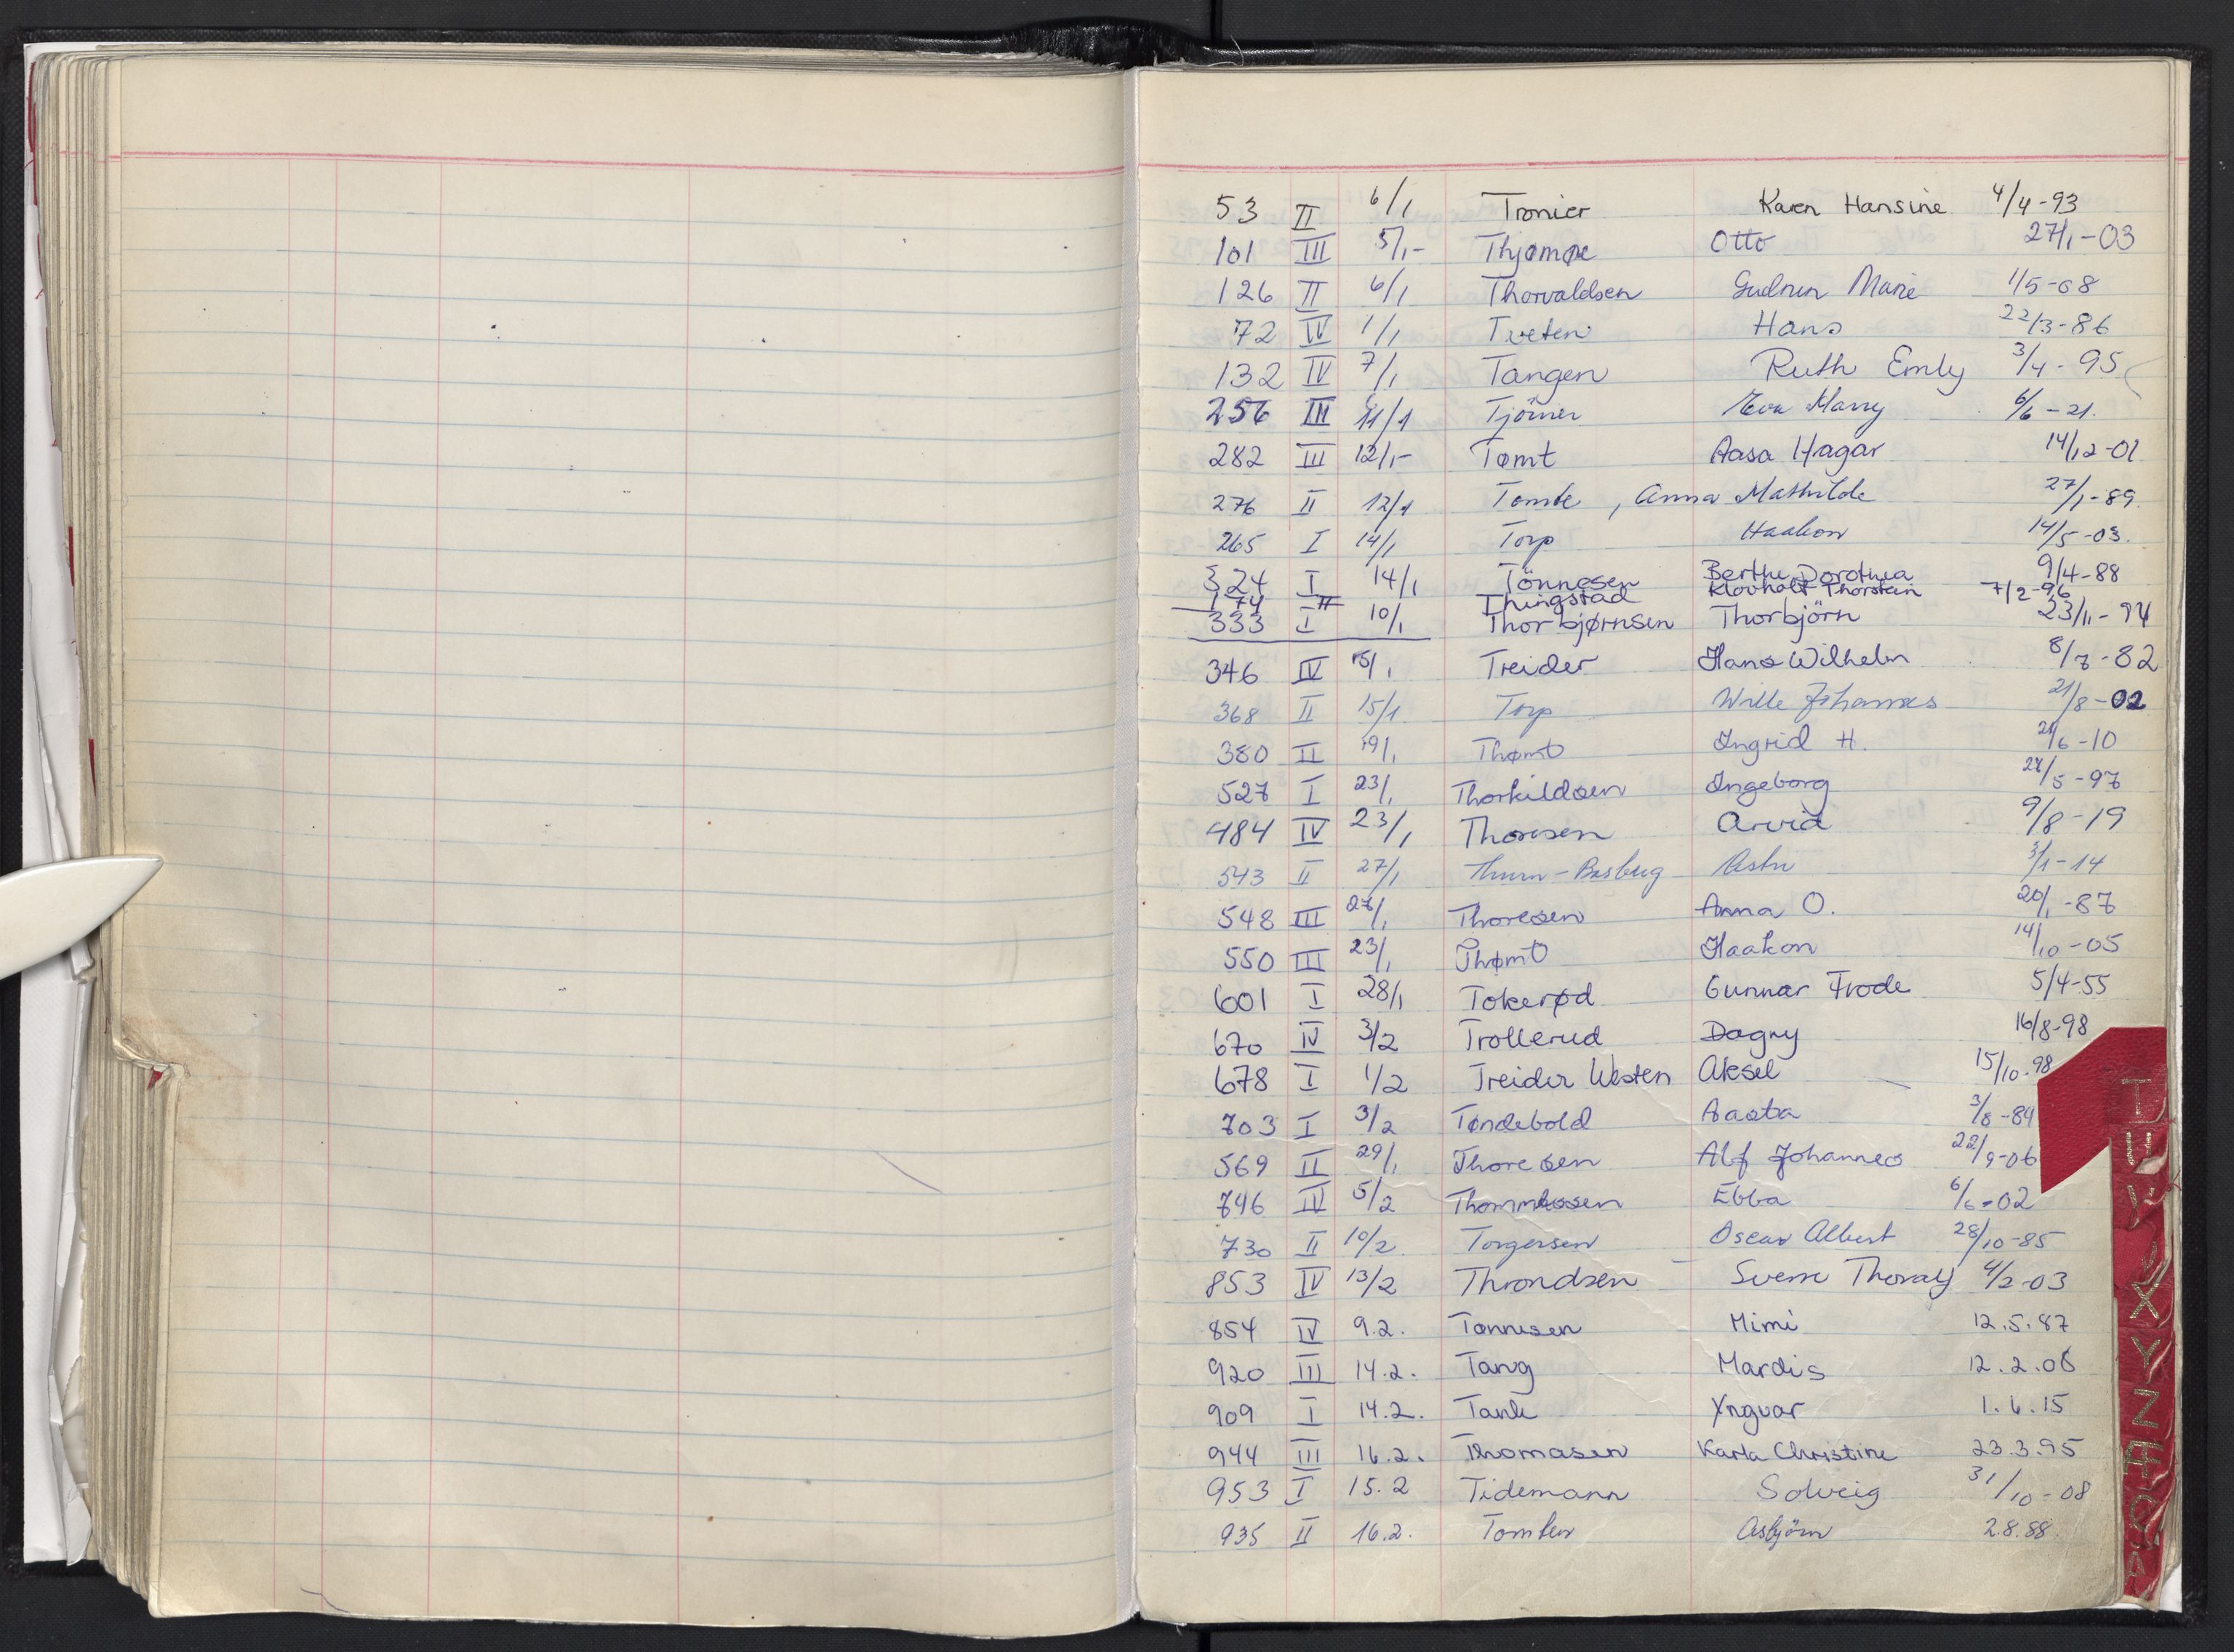 53 II 6/1 Tronier Karen Hansine 4/4-93
101 III 5/1- Thjømøe Otto 27/1-03
126 II 6/1 Thorvaldsen Gudrun Marie 1/5-08
72 IV 1/1 Tveten Hans 22/3-86
132 IV 7/1 Tangen Ruth Emly 3/4-95
256 III 11/1 Tjömer Eva Marry 6/6-21.
282 III 12/1- Tømt Aasa Hagar 14/12-01
276 II 12/1 Tomte, Anna Mathilde 27/1-89
265 I 14/1 Torp Haakon 14/5-03.
324 I 14/1 Tönnesen Berthe Dorothea 9/4-88
174 II Thingstad Klovholt Thorstein 7/2-96
333 I 10/1 Thorbjørnsen Thorbjörn 23/11-94
346 IV 15/1 Treider Hans Wilhelm 8/7-82
368 II 15/1 Torp Wille Johannes 21/8-02
380 II 19/1 Thømt Ingrid H. 21/6-10
527 I 23/1 Thorkildsen Ingeborg 27/5-97
484 IV 23/1 Thoresen Arvid 9/8-19
543 II 27/1 Thurn-Basberg Astri 3/1-14
548 III 27/1 Thoresen Anna O. 20/1-87
550 III 23/1 Thømt Haakon 14/10-05
601 I 28/1 Tokerød Gunnar Frode 5/4-55
670 IV 3/2 Trollerud Dagny 16/8-98
678 I 1/2 Treider Westen Aksel 15/10-98
703 I 3/2 Tøndebold Aasta 3/8-84
569 II 29/1 Thoresen Alf Johannes 22/9-06
746 IV 5/2 Thommessen Ebba 6/6-02
730 II 10/2 Torgersen Oscar Albert 28/10-85
853 IV 13/2 Throndsen Sverre Thoralf 4/2-03
854 IV 9.2. Tønnesen Mimi 12.5.87
920 III 14.2. Tang Mardis 12.2.06
909 I 14.2. Tank Yngvar 1.6.15
944 III 16.2. Thomasen Karla Christine 23.3.95
953 I 15.2 Tidemann Solveig 31/10-08
935 II 16.2. Tomter Asbjörn 2.8.88
T
U
V
X
Y
Z
Æ
Ø